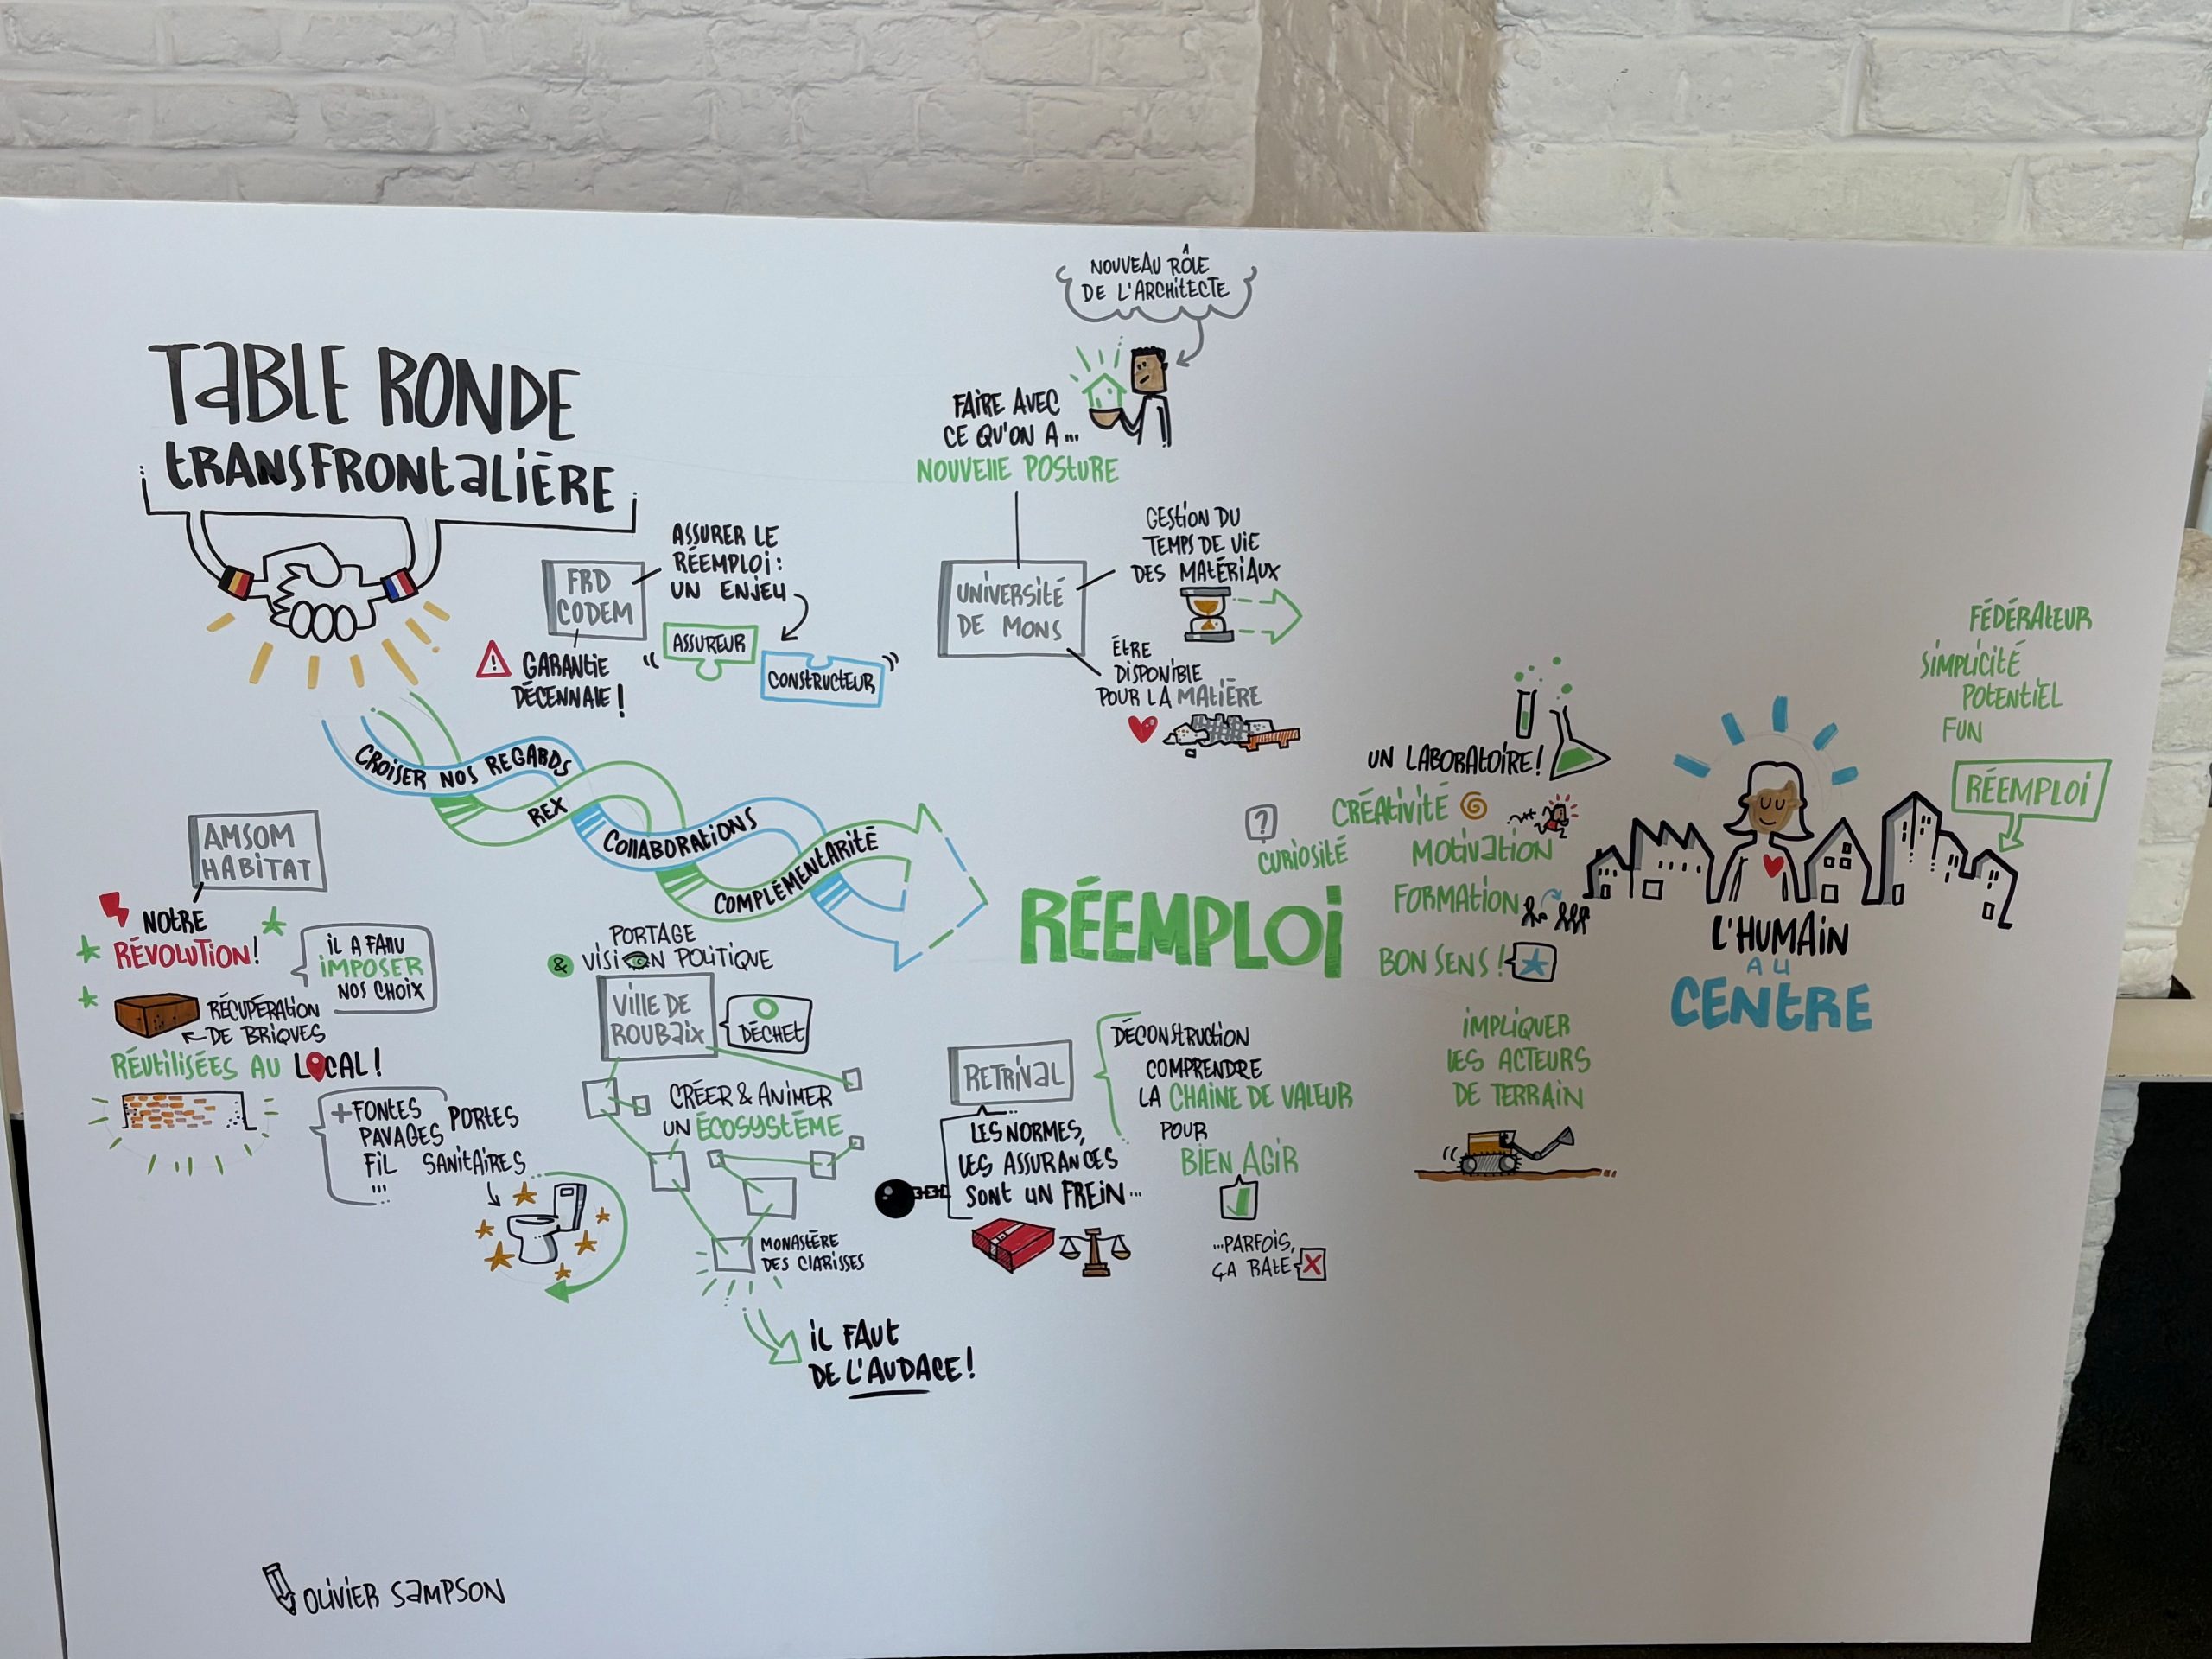 TABLE RONDE
TRANSFRONTALIÈRE
NOUVEAU RÔLE
DE L'ARCHITECTE
FAIRE AVEC
CE QU'ON A...
NOUVELLE POSTURE
UNIVERSITÉ
DE MONS
GESTION DU
TEMPS DE VIE
DES MATÉRIAUX
ÊTRE
DISPONIBLE
POUR LA MATIÈRE
FRD
CODEM
ASSURER LE
RÉEMPLOI :
UN ENJEU
ASSUREUR
CONSTRUCTEUR
GARANTIE
DÉCENNALE !
CROISER NOS REGARDS
REX
COLLABORATIONS
COMPLÉMENTARITÉ
RÉEMPLOI
AMSOM
HABITAT
NOTRE
RÉVOLUTION !
IL A FALLU
IMPOSER
NOS CHOIX
RÉCUPÉRATION
DE BRIQUES
RÉUTILISÉES AU LOCAL !
+ FONTES
PORTES
PAVAGES
FIL SANITAIRES
...
PORTAGE
& VISION POLITIQUE
VILLE DE
ROUBAIX
0
DÉCHET
CRÉER & ANIMER
UN ÉCOSYSTÈME
MONASTÈRE
DES CLARISSES
IL FAUT
DE L'AUDACE !
RETRIVAL
DÉCONSTRUCTION
COMPRENDRE
LA CHAINE DE VALEUR
POUR
BIEN AGIR
...PARFOIS,
ÇA RATE
LES NORMES,
LES ASSURANCES
SONT UN FREIN...
UN LABORATOIRE !
CRÉATIVITÉ
?
CURIOSITÉ
MOTIVATION
FORMATION
BON SENS !
IMPLIQUER
LES ACTEURS
DE TERRAIN
FÉDÉRATEUR
SIMPLICITÉ
POTENTIEL
FUN
RÉEMPLOI
L'HUMAIN
AU
CENTRE
OLIVIER SAMPSON